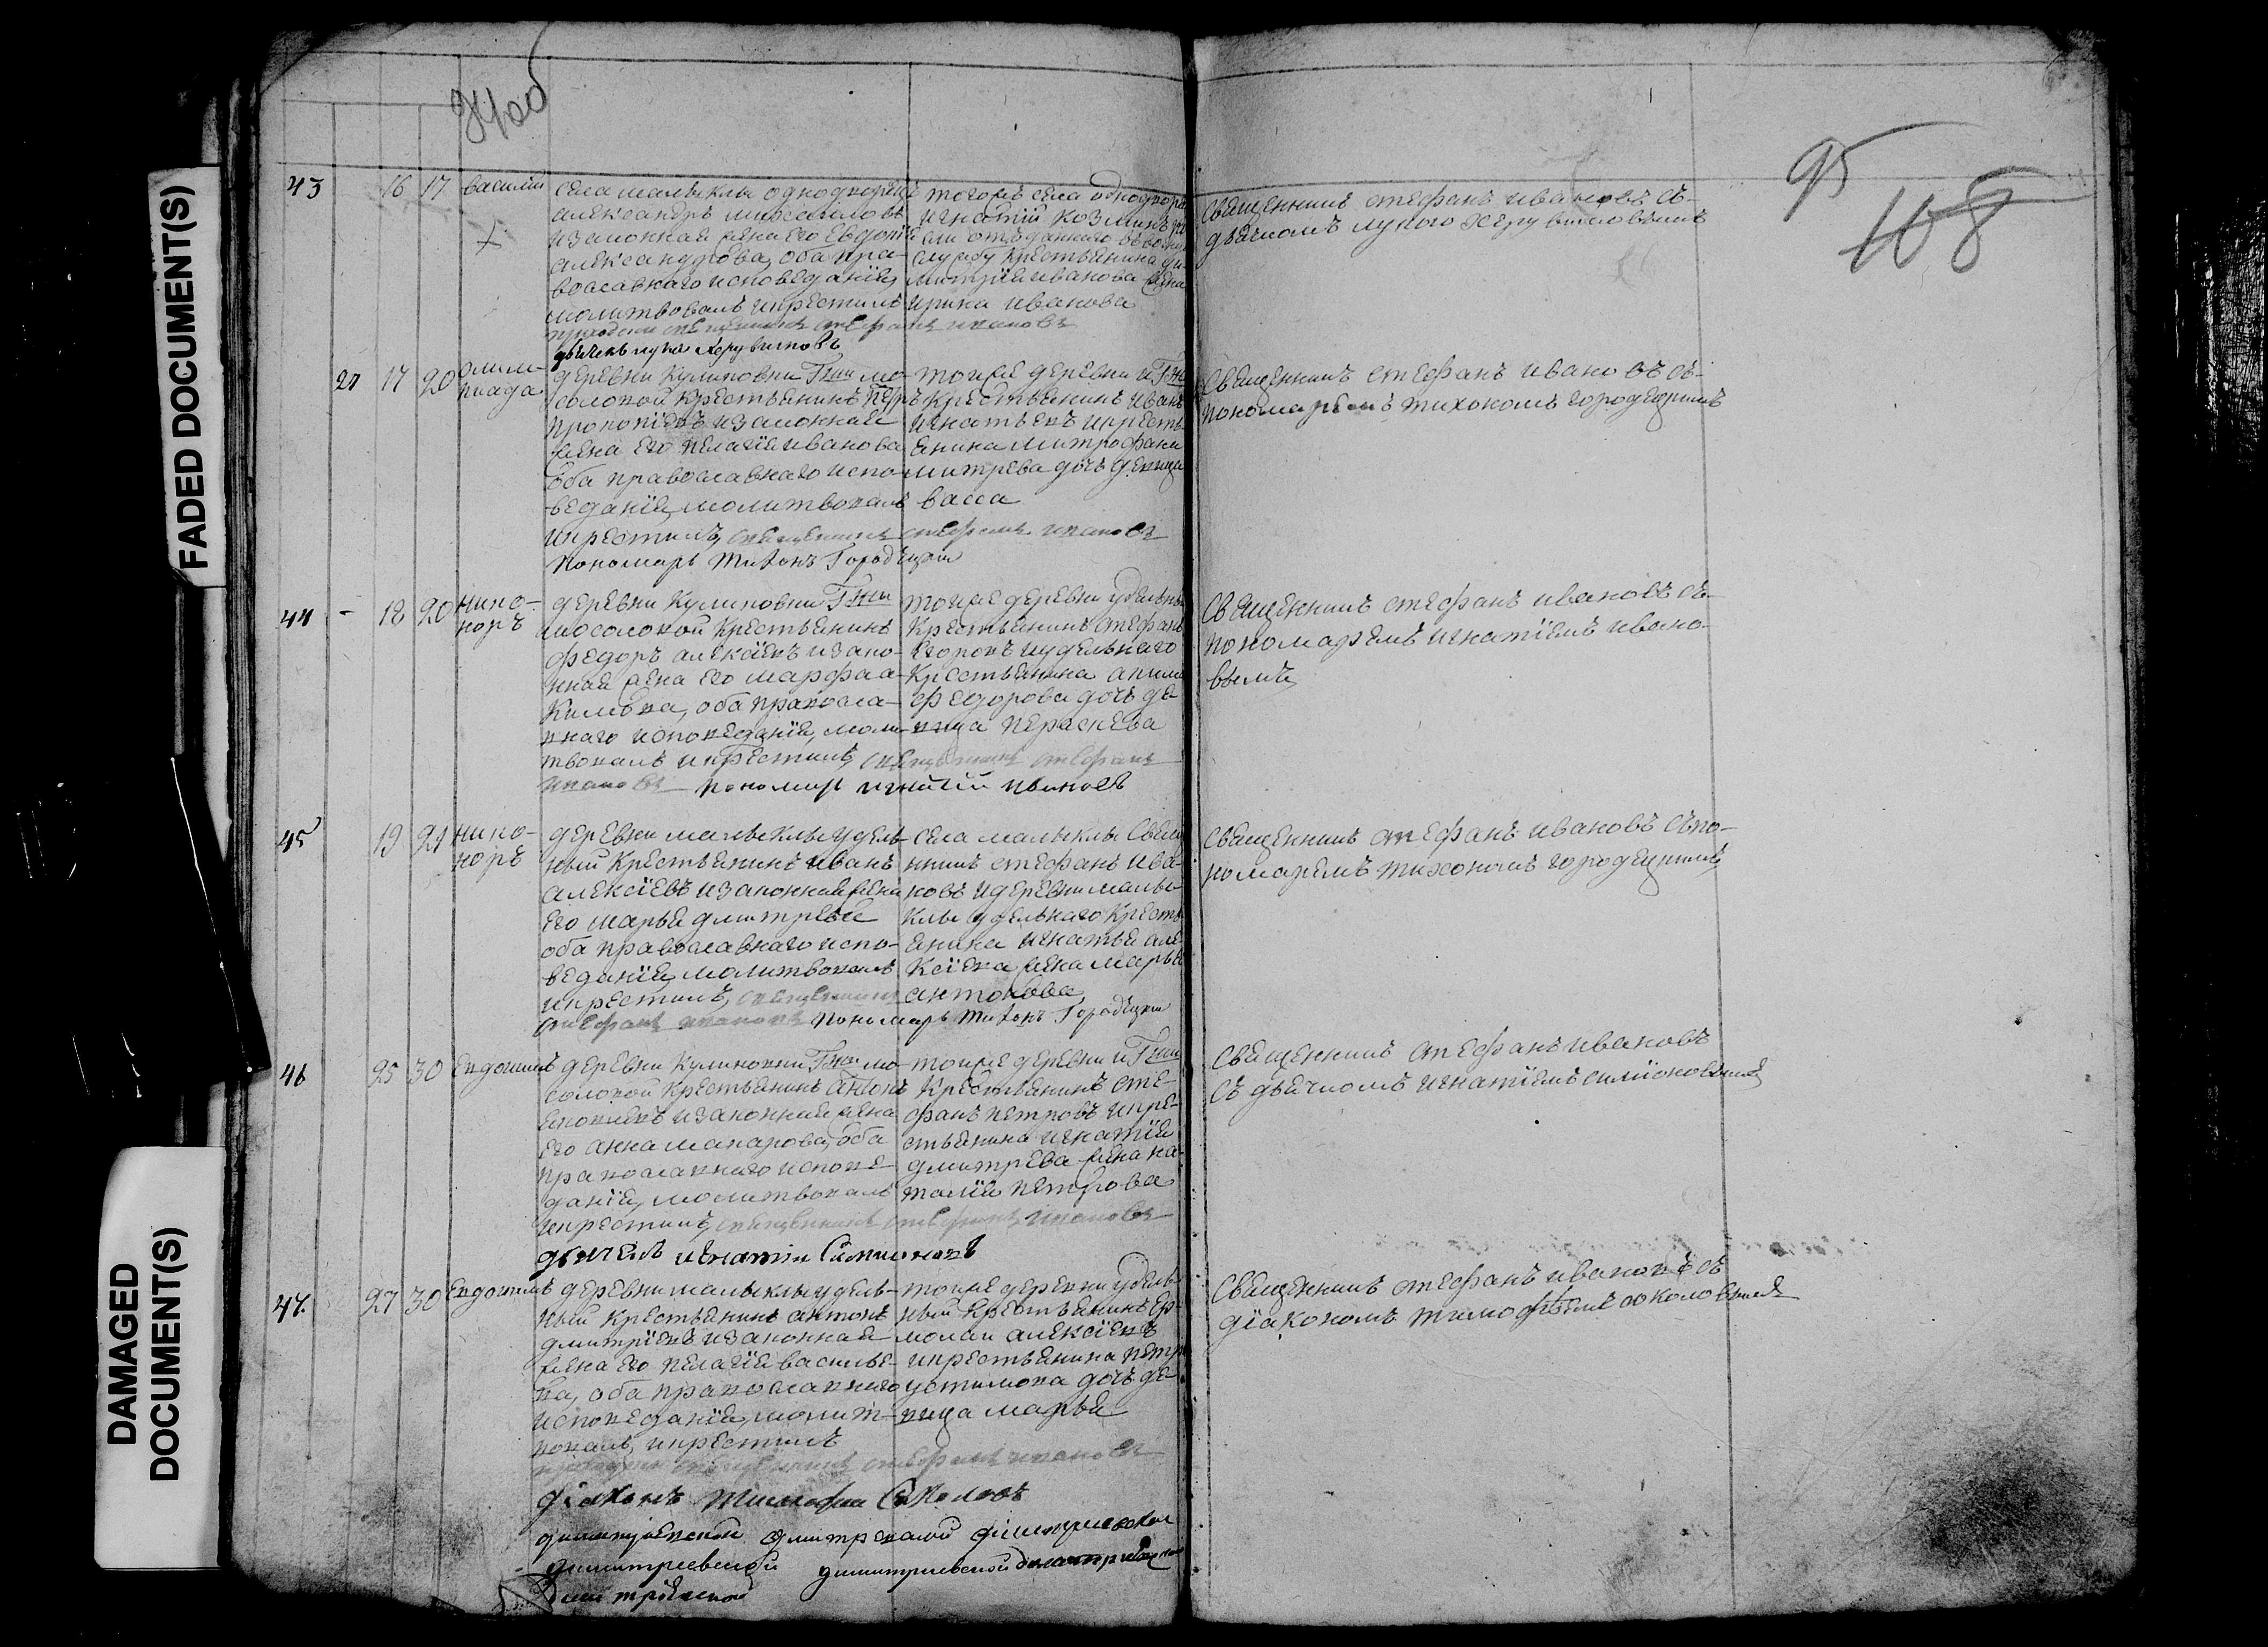 FADED DOCUMENT(S)
DAMAGED
DOCUMENT(S)
95
108
43 16 17 василий
села малыклы однодворецъ
александръ михайловъ
изаконная жена его Евдокия
александрова, оба пра-
вославнаго исповеданїя,
молитвовалъ икрестилъ
приходский священникъ стефанъ ивановъ
дьячекъ лука Херувимовъ
тогожъ села однодвор
игнатий козминъ
отъданнаго въ
службу крестьянина ди-
митрия иванова жена
ирина иванова
священникъ стефанъ ивановъ съ-
дьячкомъ лукою херувимовымъ
24 17 20 олим-
пиада
деревни Куликовки Гжи мо-
соловой крестьянинъ
прокопїевъ изаконная
жена его пелагїя иванова
оба православнаго испо-
веданїя, молитвовалъ
икрестилъ, священникъ стефанъ ивановъ
Пономарь Тихонъ Городецкий
тоиже деревни иГжи
крестьянинъ иванъ
игнатьевъ икресть-
янина митрофана
митрева дочь девица
васса
Священникъ стефанъ ивановъ съ-
пономаремъ тихономъ городецкимъ
44 - 18 20 Нико-
норъ
деревни Куликовки Гжи
мосоловой крестьянинъ
федоръ алексїевъ изако-
нная жена его марфа а-
кимова, оба правосла-
внаго исповеданїя, моли-
твовалъ икрестилъ, священникъ стефанъ
ивановъ пономарь игнатий ивановъ
тоиже деревни удельны
крестьянинъ стефанъ
егоровъ иудельнаго
крестьянина акима
федорова дочь де-
вица параскева
Священникъ стефанъ ивановъ съ-
пономаремъ игнатїемъ ивано-
вымъ
45 19 21 Нико-
норъ
деревни малыклы удель-
ный крестьянинъ иванъ
алексїевъ изаконная жена
его марья дмитрева
оба православнаго испо-
веданїя, молитвовалъ
икрестилъ, священникъ
стефанъ ивановъ Пономарь Тихонъ Городецкий
села малыклы свяще
нникъ стефанъ ива-
новъ идеревни малы-
клы удельнаго кресть
янина игнатья але-
ксїева жена марья
антонова
священникъ стефанъ ивановъ съпо-
номаремъ тихономъ городецкимъ
46 25 30 Евдокимъ
деревни Куликовки Гжи мо-
соловой крестьянинъ антонъ
изаконная жена
его анна макарова, оба
православнаго испове-
данїя, молитвовалъ
икрестилъ, священникъ стефанъ ивановъ
дьячекъ игнатий Симионовъ
тоиже деревни иГжи
крестьянинъ сте-
фанъ петровъ икре-
стьянина игнатїя
дмитрева жена на-
талїя петрова
священникъ стефанъ ивановъ
съ дьячкомъ игнатїемъ симїоновымъ
47. 27 30 Евдокимъ
деревни малыклы удель-
ный крестьянинъ антонъ
дмитрїевъ изаконная
жена его пелагїя василье-
ва, оба православнаго
исповеданїя, молит-
вовалъ, икрестилъ
приходский священникъ стефанъ ивановъ
дїаконъ тимофей Соколовъ
тоиже деревни удель-
ный крестьянинъ ер-
молаи алексїевъ
икрестьянина петра
устимова дочь де-
вица марья
священникъ стефанъ ивановъ съ
дїакономъ тимофѣемъ соколовымъ
димитрїевской димитревской димитриевской
димитриевской димитриевской димитриевской
Димитрїевской